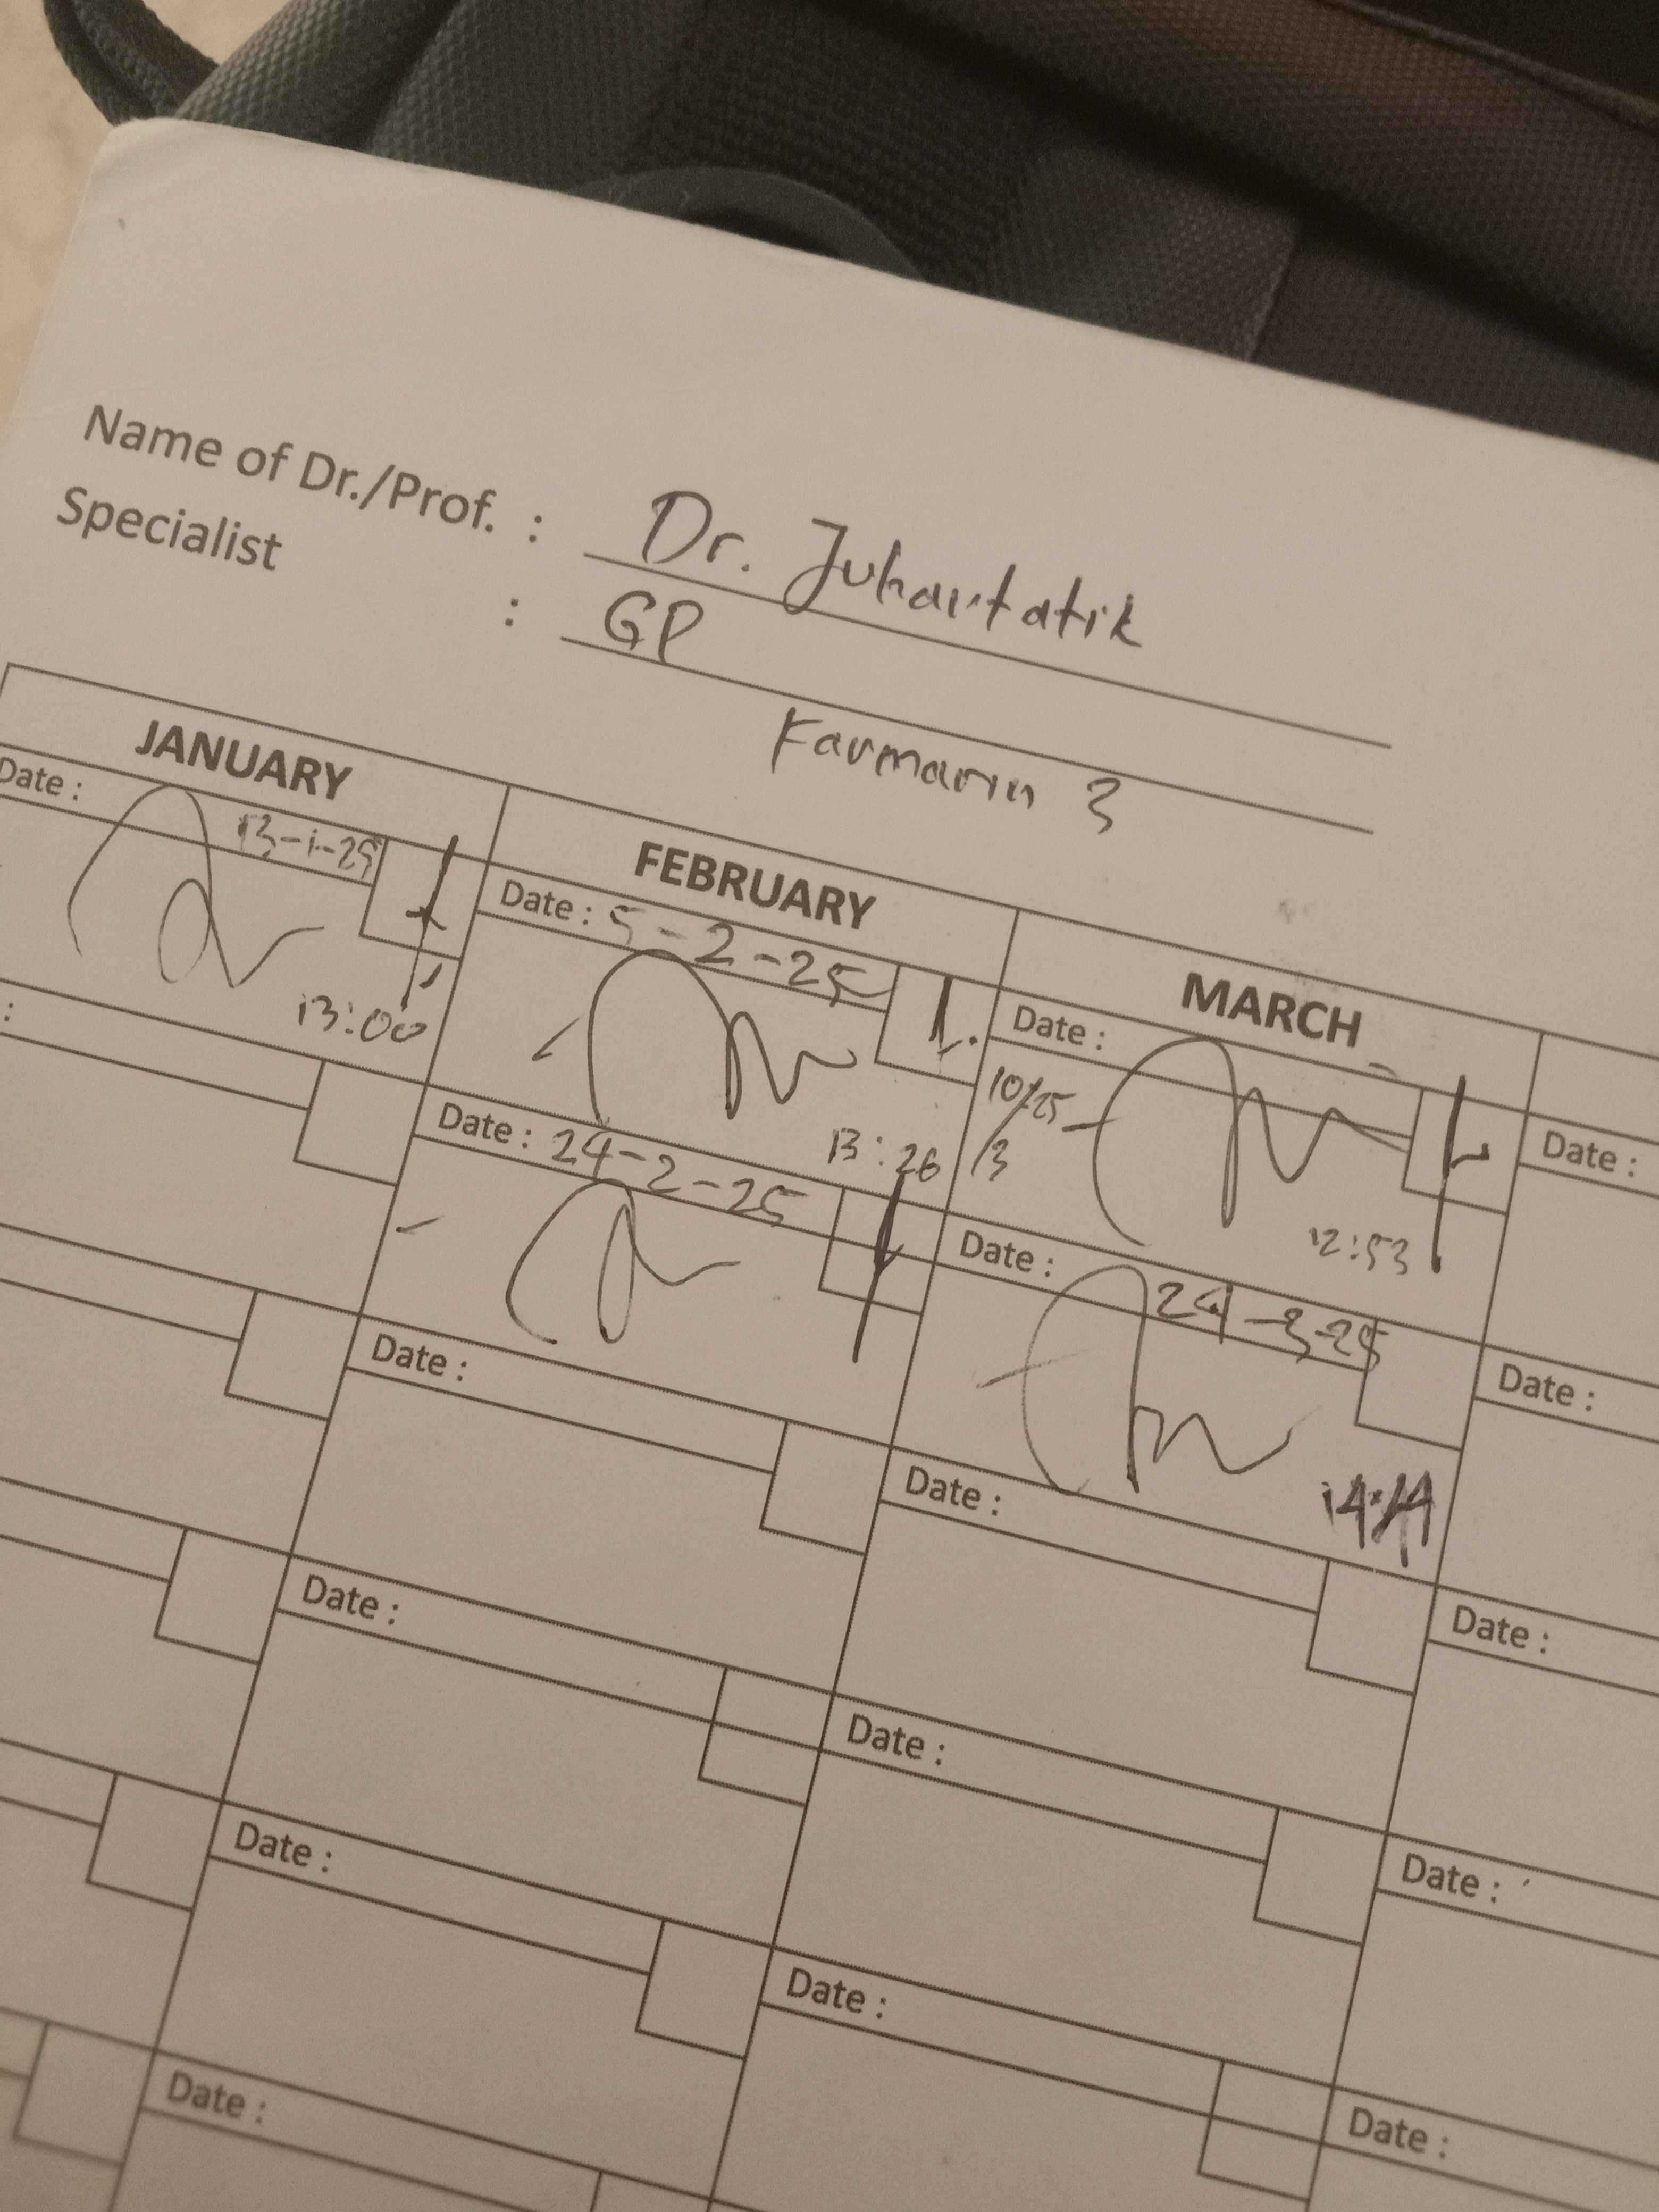 Name of Dr./Prof. : Dr. Juhartatik
Specialist : GP
Farmarin 3
JANUARY
FEBRUARY
MARCH
Date : 13-1-25
13:00
Date : 5-2-25
13:26
Date :
10/25
/3
12:53
Date :
:
Date : 24-2-25
Date : 24-3-25
14:14
Date :
Date :
Date :
Date :
Date :
Date :
Date :
Date :
Date :
Date :
Date :
Date :